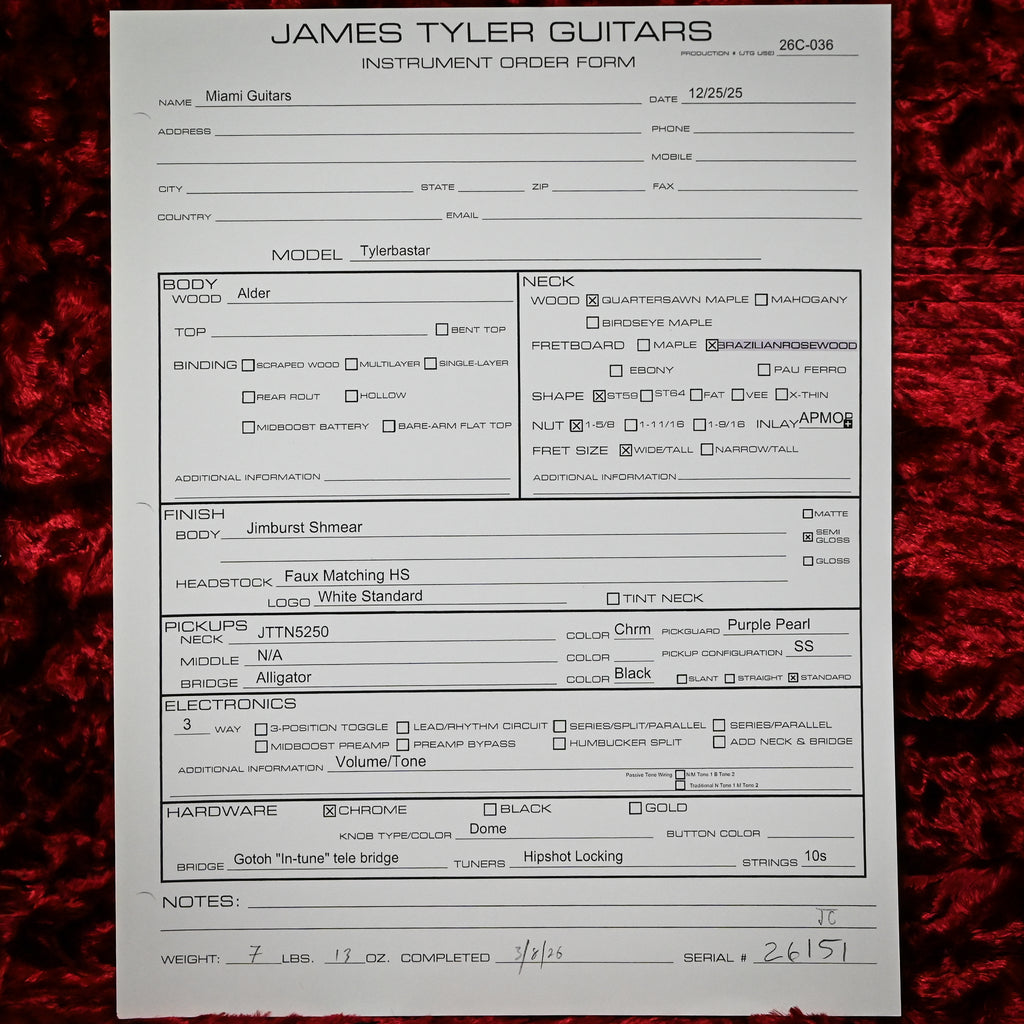 JAMES TYLER GUITARS
INSTRUMENT ORDER FORM
PRODUCTION # (JTG USE) 26C-036
NAME Miami Guitars DATE 12/25/25
ADDRESS PHONE
MOBILE
CITY STATE ZIP FAX
COUNTRY EMAIL
MODEL Tylerbastar
BODY
WOOD Alder
TOP BENT TOP
BINDING SCRAPED WOOD MULTILAYER SINGLE-LAYER
REAR ROUT HOLLOW
MIDBOOST BATTERY BARE-ARM FLAT TOP
ADDITIONAL INFORMATION
NECK
WOOD ☒ QUARTERSAWN MAPLE ☐ MAHOGANY
☐ BIRDSEYE MAPLE
FRETBOARD ☐ MAPLE ☒ BRAZILIANROSEWOOD
☐ EBONY ☐ PAU FERRO
SHAPE ☒ ST59 ☐ ST64 ☐ FAT ☐ VEE ☐ X-THIN
NUT ☒ 1-5/8 ☐ 1-11/16 ☐ 1-9/16 INLAY APMOP
FRET SIZE ☒ WIDE/TALL ☐ NARROW/TALL
ADDITIONAL INFORMATION
FINISH
BODY Jimburst Shmear
☐ MATTE
☒ SEMI GLOSS
☐ GLOSS
HEADSTOCK Faux Matching HS
LOGO White Standard ☐ TINT NECK
PICKUPS
NECK JTTN5250 COLOR Chrm PICKGUARD Purple Pearl
MIDDLE N/A COLOR PICKUP CONFIGURATION SS
BRIDGE Alligator COLOR Black ☐ SLANT ☐ STRAIGHT ☒ STANDARD
ELECTRONICS
3 WAY ☐ 3-POSITION TOGGLE ☐ LEAD/RHYTHM CIRCUIT ☐ SERIES/SPLIT/PARALLEL ☐ SERIES/PARALLEL
☐ MIDBOOST PREAMP ☐ PREAMP BYPASS ☐ HUMBUCKER SPLIT ☐ ADD NECK & BRIDGE
ADDITIONAL INFORMATION Volume/Tone
Passive Tone Wiring ☐ N/M Tone 1 B Tone 2
☐ Traditional N Tone 1 M Tone 2
HARDWARE ☒ CHROME ☐ BLACK ☐ GOLD
KNOB TYPE/COLOR Dome BUTTON COLOR
BRIDGE Gotoh "In-tune" tele bridge TUNERS Hipshot Locking STRINGS 10s
NOTES:
JC
WEIGHT: 7 LBS. 13 OZ. COMPLETED 3/8/26 SERIAL # 26151